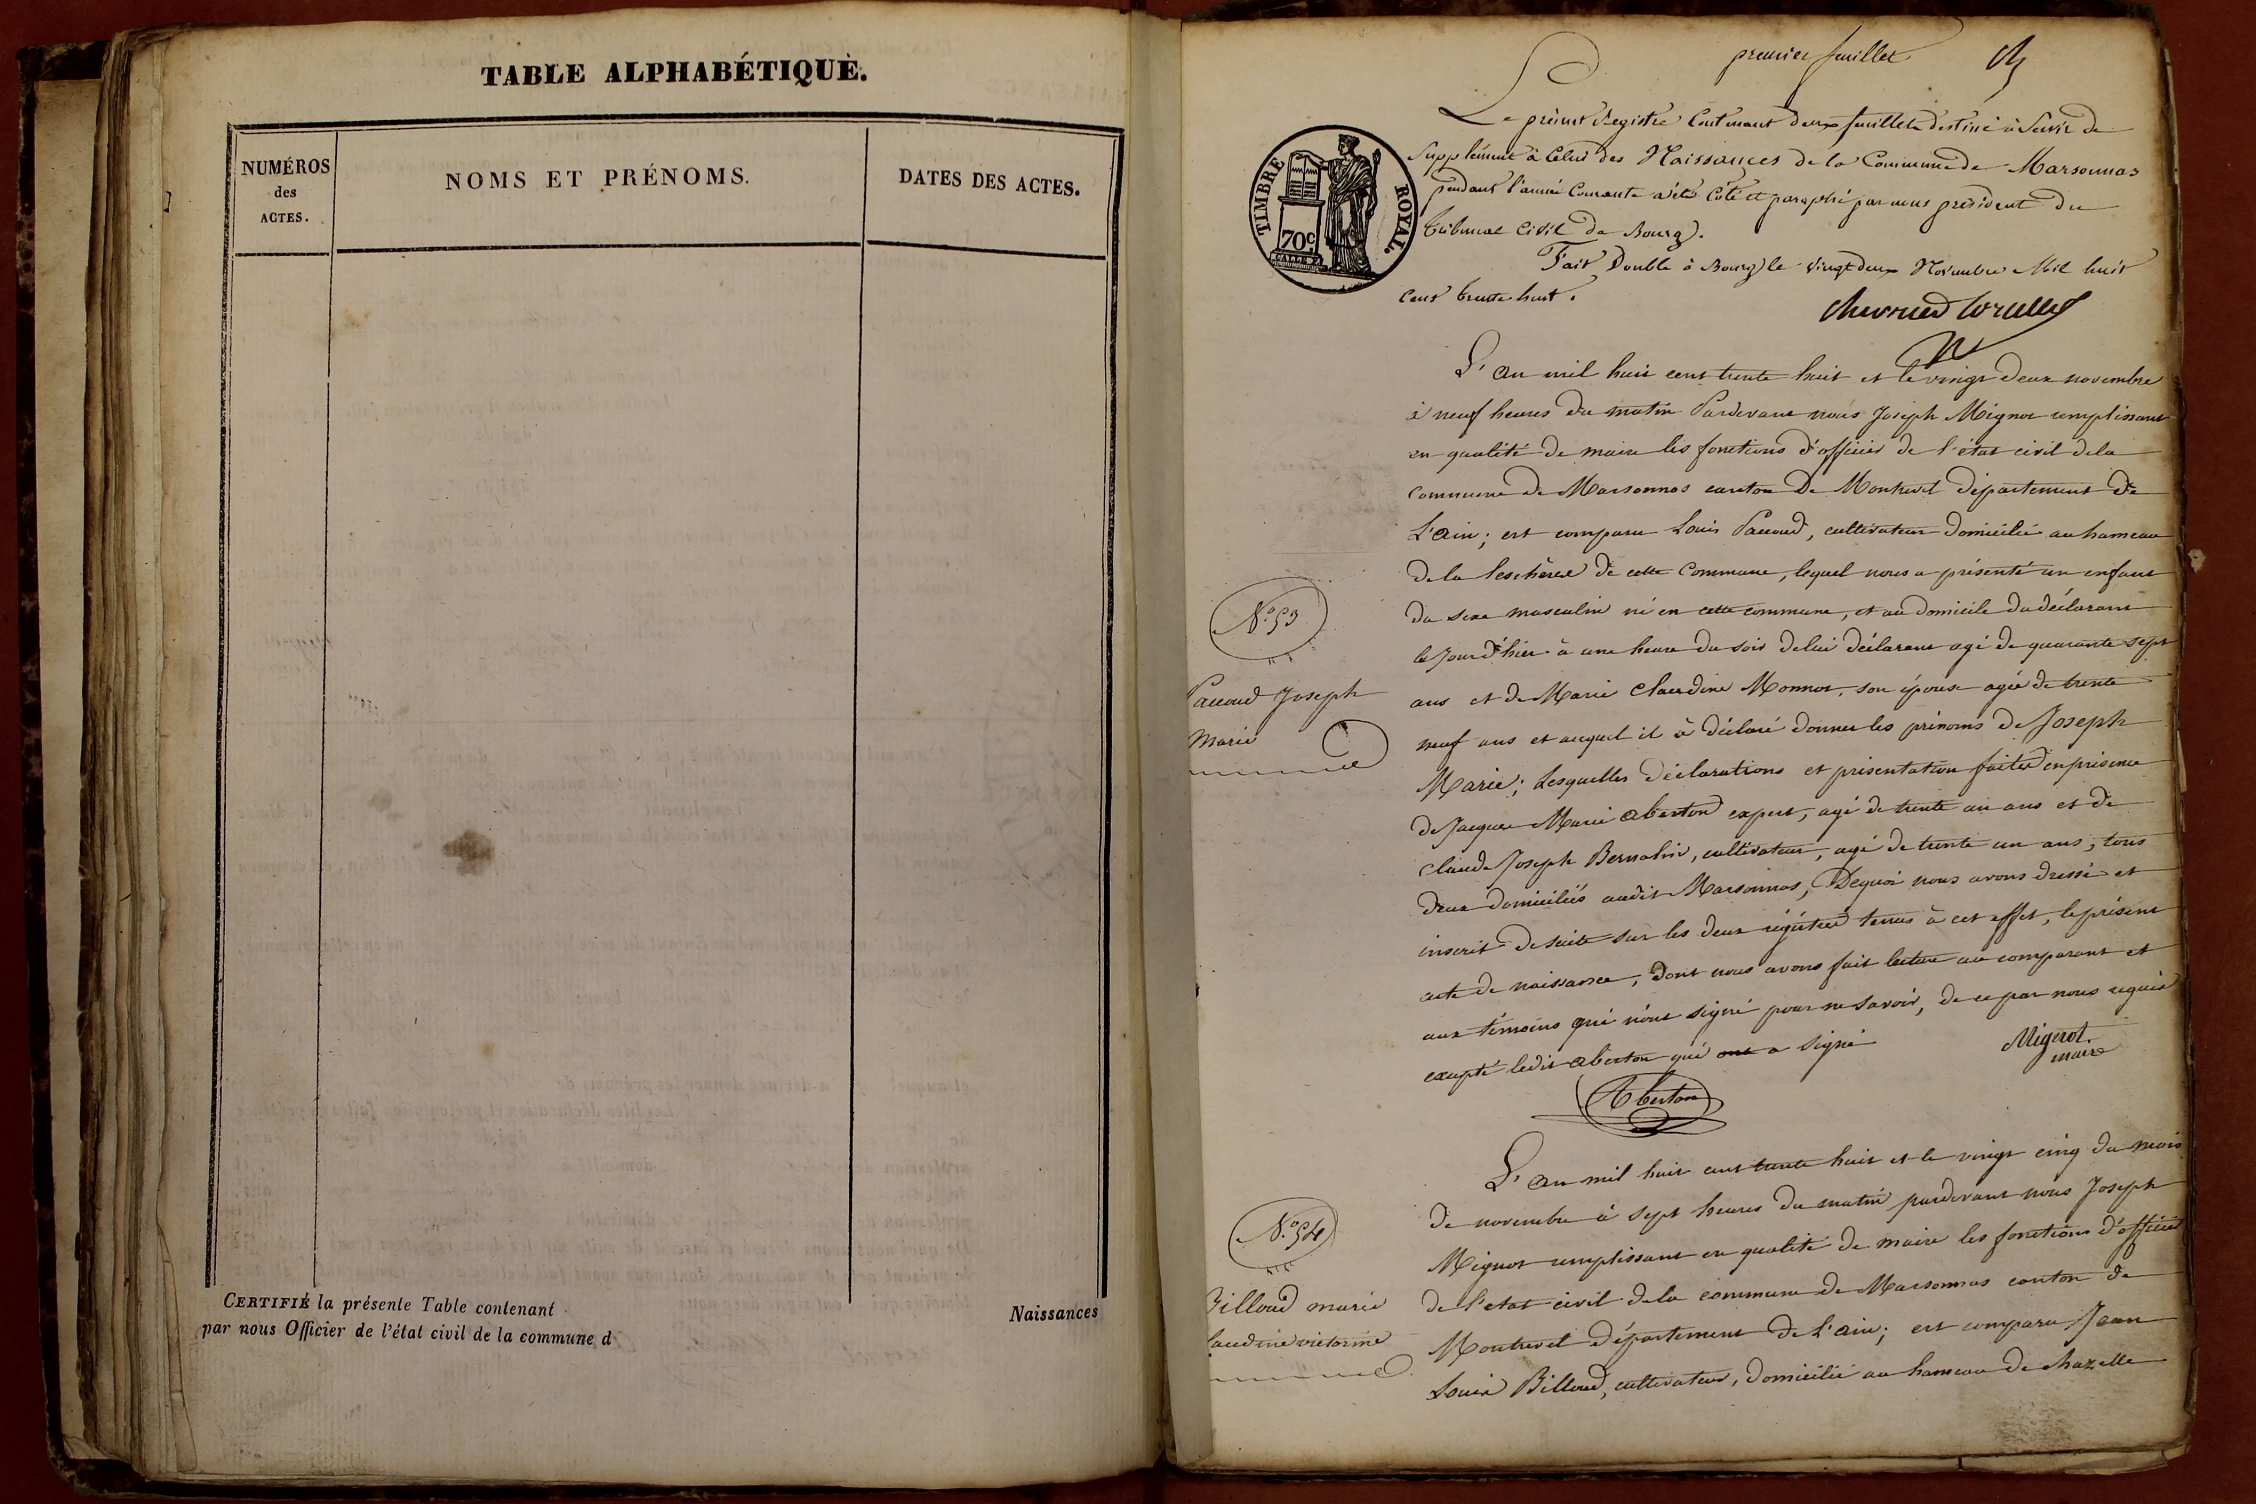 TABLE ALPHABÉTIQUE.
NUMÉROS
des
ACTES.
NOMS ET PRÉNOMS.
DATES DES ACTES.
CERTIFIÉ la présente Table contenant
Naissances
par nous Officier de l'état civil de la commune d
premier feuillet
TIMBRE ROYAL.
70c
Le présent Registre Contenant deux feuillets destiné à Servir de
Supplément à Celui des Naissances de la Commune de Marsonnas
pendant l'année Courante a été Coté et paraphé par nous président du
tribunal Civil de Bourg.
Fait Double à Bourg le vingt deux Novembre Mil huit
Cent trente huit.
L'an mil huit cent trente huit et le vingt deux novembre
à neuf heures du matin Pardevant nous Joseph Mignot remplissant
en qualité de maire les fonctions d'officier de l'état civil de la
commune de Marsonnas canton De Montrevel département De
L'ain; est comparu Louis Paccoud, cultivateur domicilié au hameau
de la leschère de cette Commune, lequel nous a présenté un enfant
du sexe masculin né en cette commune, et au domicile du déclarant
le jour d'hier à une heure du soir de lui déclarant agé de quarante sept
N°. 53
Paccoud Joseph
Marie
ans et de Marie Claudine Monnot, son épouse agée de trente
neuf ans et auquel il à déclaré donner les prénoms de Joseph
Marie; Lesquelles déclarations et présentation faites en présence
de Jacques Marie Aberton expert, agé de trente un ans et de
Claude Joseph Bernalin, cultivateur, agé de trente un ans, tous
deux domiciliés audit Marsonnas, De quoi nous avons dressé et
inscrit de suite sur les deux régistres tenus à cet effet, le présent
acte de naissance, dont nous avons fait lecture au comparant et
aux témoins qui n'ont signé pour ne savoir, de ce par nous requis
excepté ledit Aberton qui ont a signé
Mignot
maire
Aberton
L'an mil huit cent trente huit et le vingt cinq du mois
de novembre à sept heures du matin pardevant nous Joseph
N°. 54
Billoud marie
laudine victorine
Mignot remplissant en qualité de maire les fonctions d'officier
de l'etat civil de la commune de Marsonnas canton de
Montrevel département De L'ain; est comparu Jean
Louis Billoud, cultivateur, domicilié au hameau de chazelle